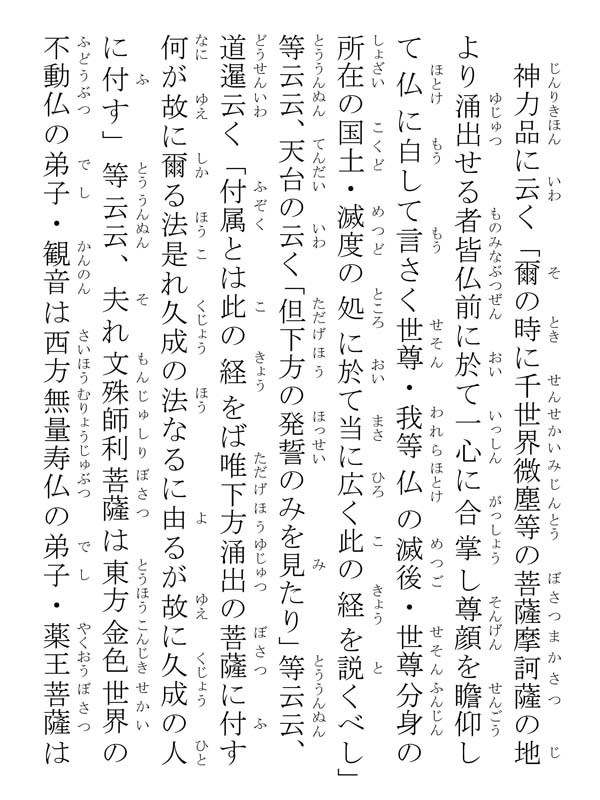 神力品に云く「爾の時に千世界微塵等の菩薩摩訶薩の地
より涌出せる者皆仏前に於て一心に合掌し尊顔を瞻仰し
て仏に白して言さく世尊・我等仏の滅後・世尊分身の
所在の国土・滅度の処に於て当に広く此の経を説くべし」
等云云、天台の云く「但下方の発誓のみを見たり」等云云、
道暹云く「付属とは此の経をば唯下方涌出の菩薩に付す
何が故に爾る法是れ久成の法なるに由るが故に久成の人
に付す」等云云、夫れ文殊師利菩薩は東方金色世界の
不動仏の弟子・観音は西方無量寿仏の弟子・薬王菩薩は